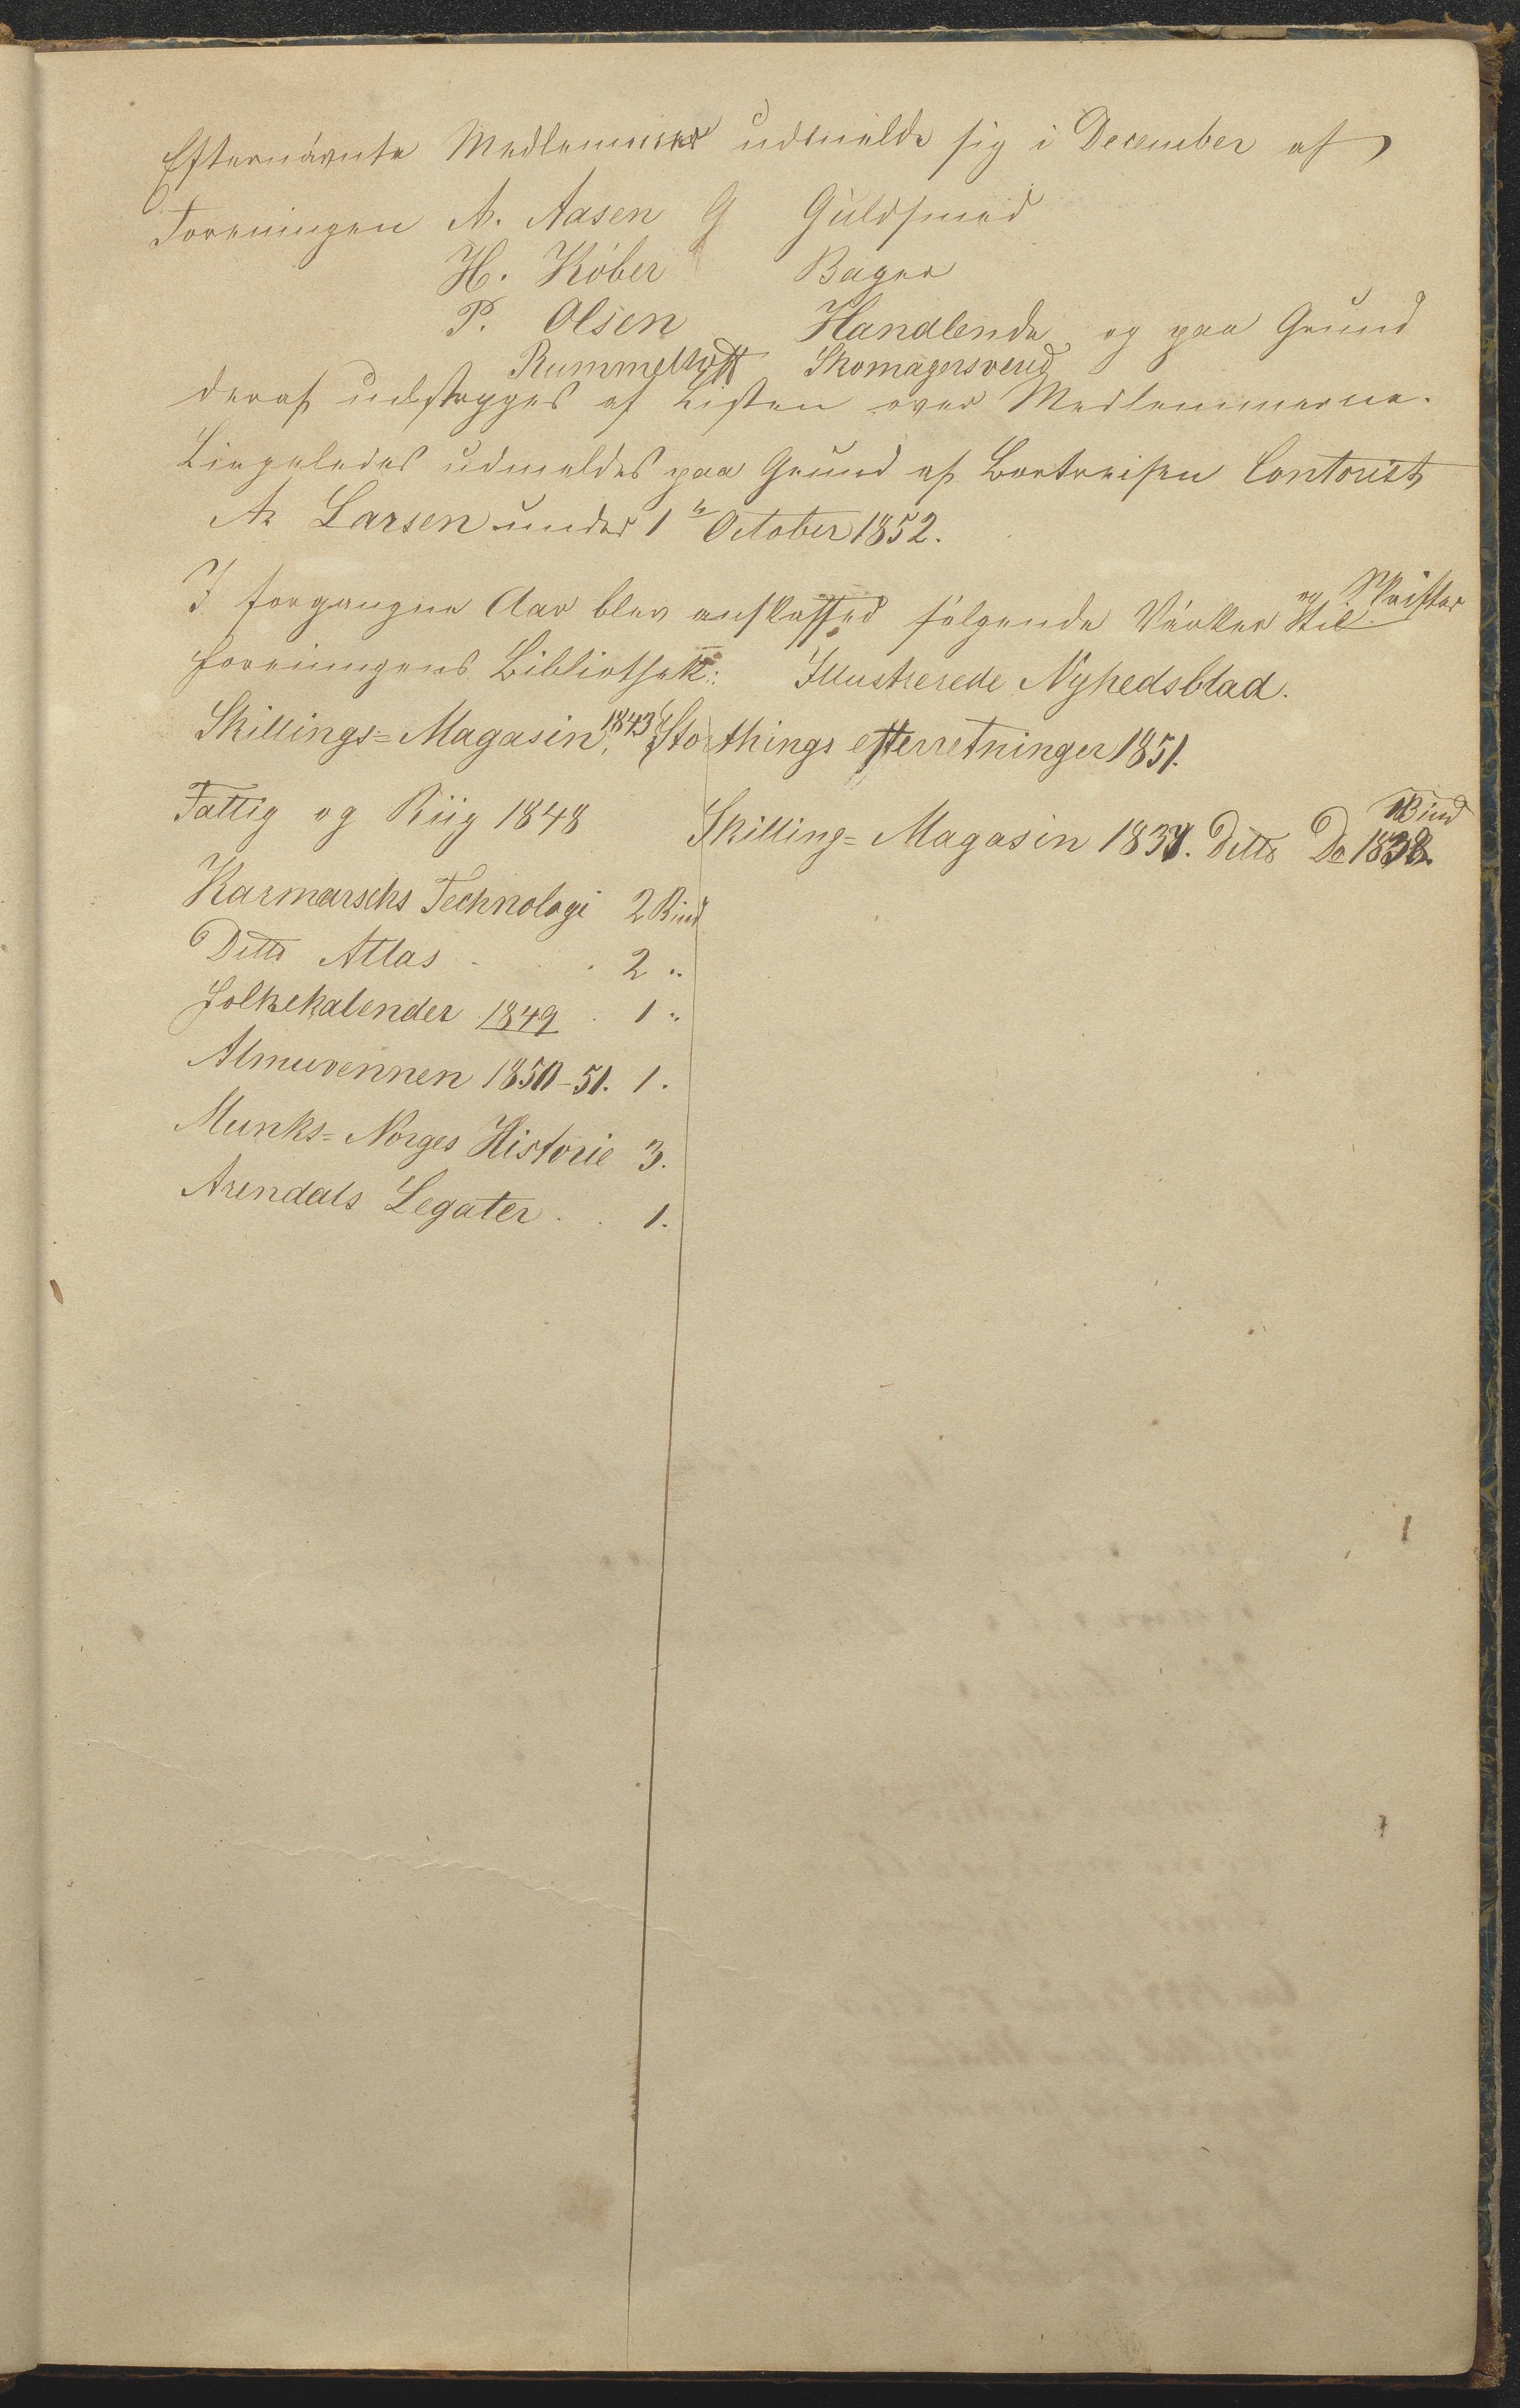 Efternävnte Medlemmer udmeldte sig i December af
Foreningen A. Aasen G Guldsmed
H. Köber Bager
P. Olsen Handlende og paa Grund
Rummelhoff Skomagersvend
deraf udstryges af Listen over Medlemmerne.
Ligeledes udmeldes paa Grund af Bortreisen Contorist
A. Larsen under 1te October 1852.
I forgangne Aar blev anskaffed følgende Värker og Skrifter til
Foreningens Bibliothek: Illustrerede Nyhedsblad.
Skillings=Magasin, 1843 Storthings efterretninger 1851.
Fattig og Riig 1848 Skilling=Magasin 1837. Ditto Do 1838. 1 Bind
Karmarschs Technologi 2 Bind
Ditto Atlas . . 2 "
Folkekalender 1849 . 1 "
Almuevennen 1850-51. 1.
Munks=Norges Historie 3.
Arendals Legater . . 1.